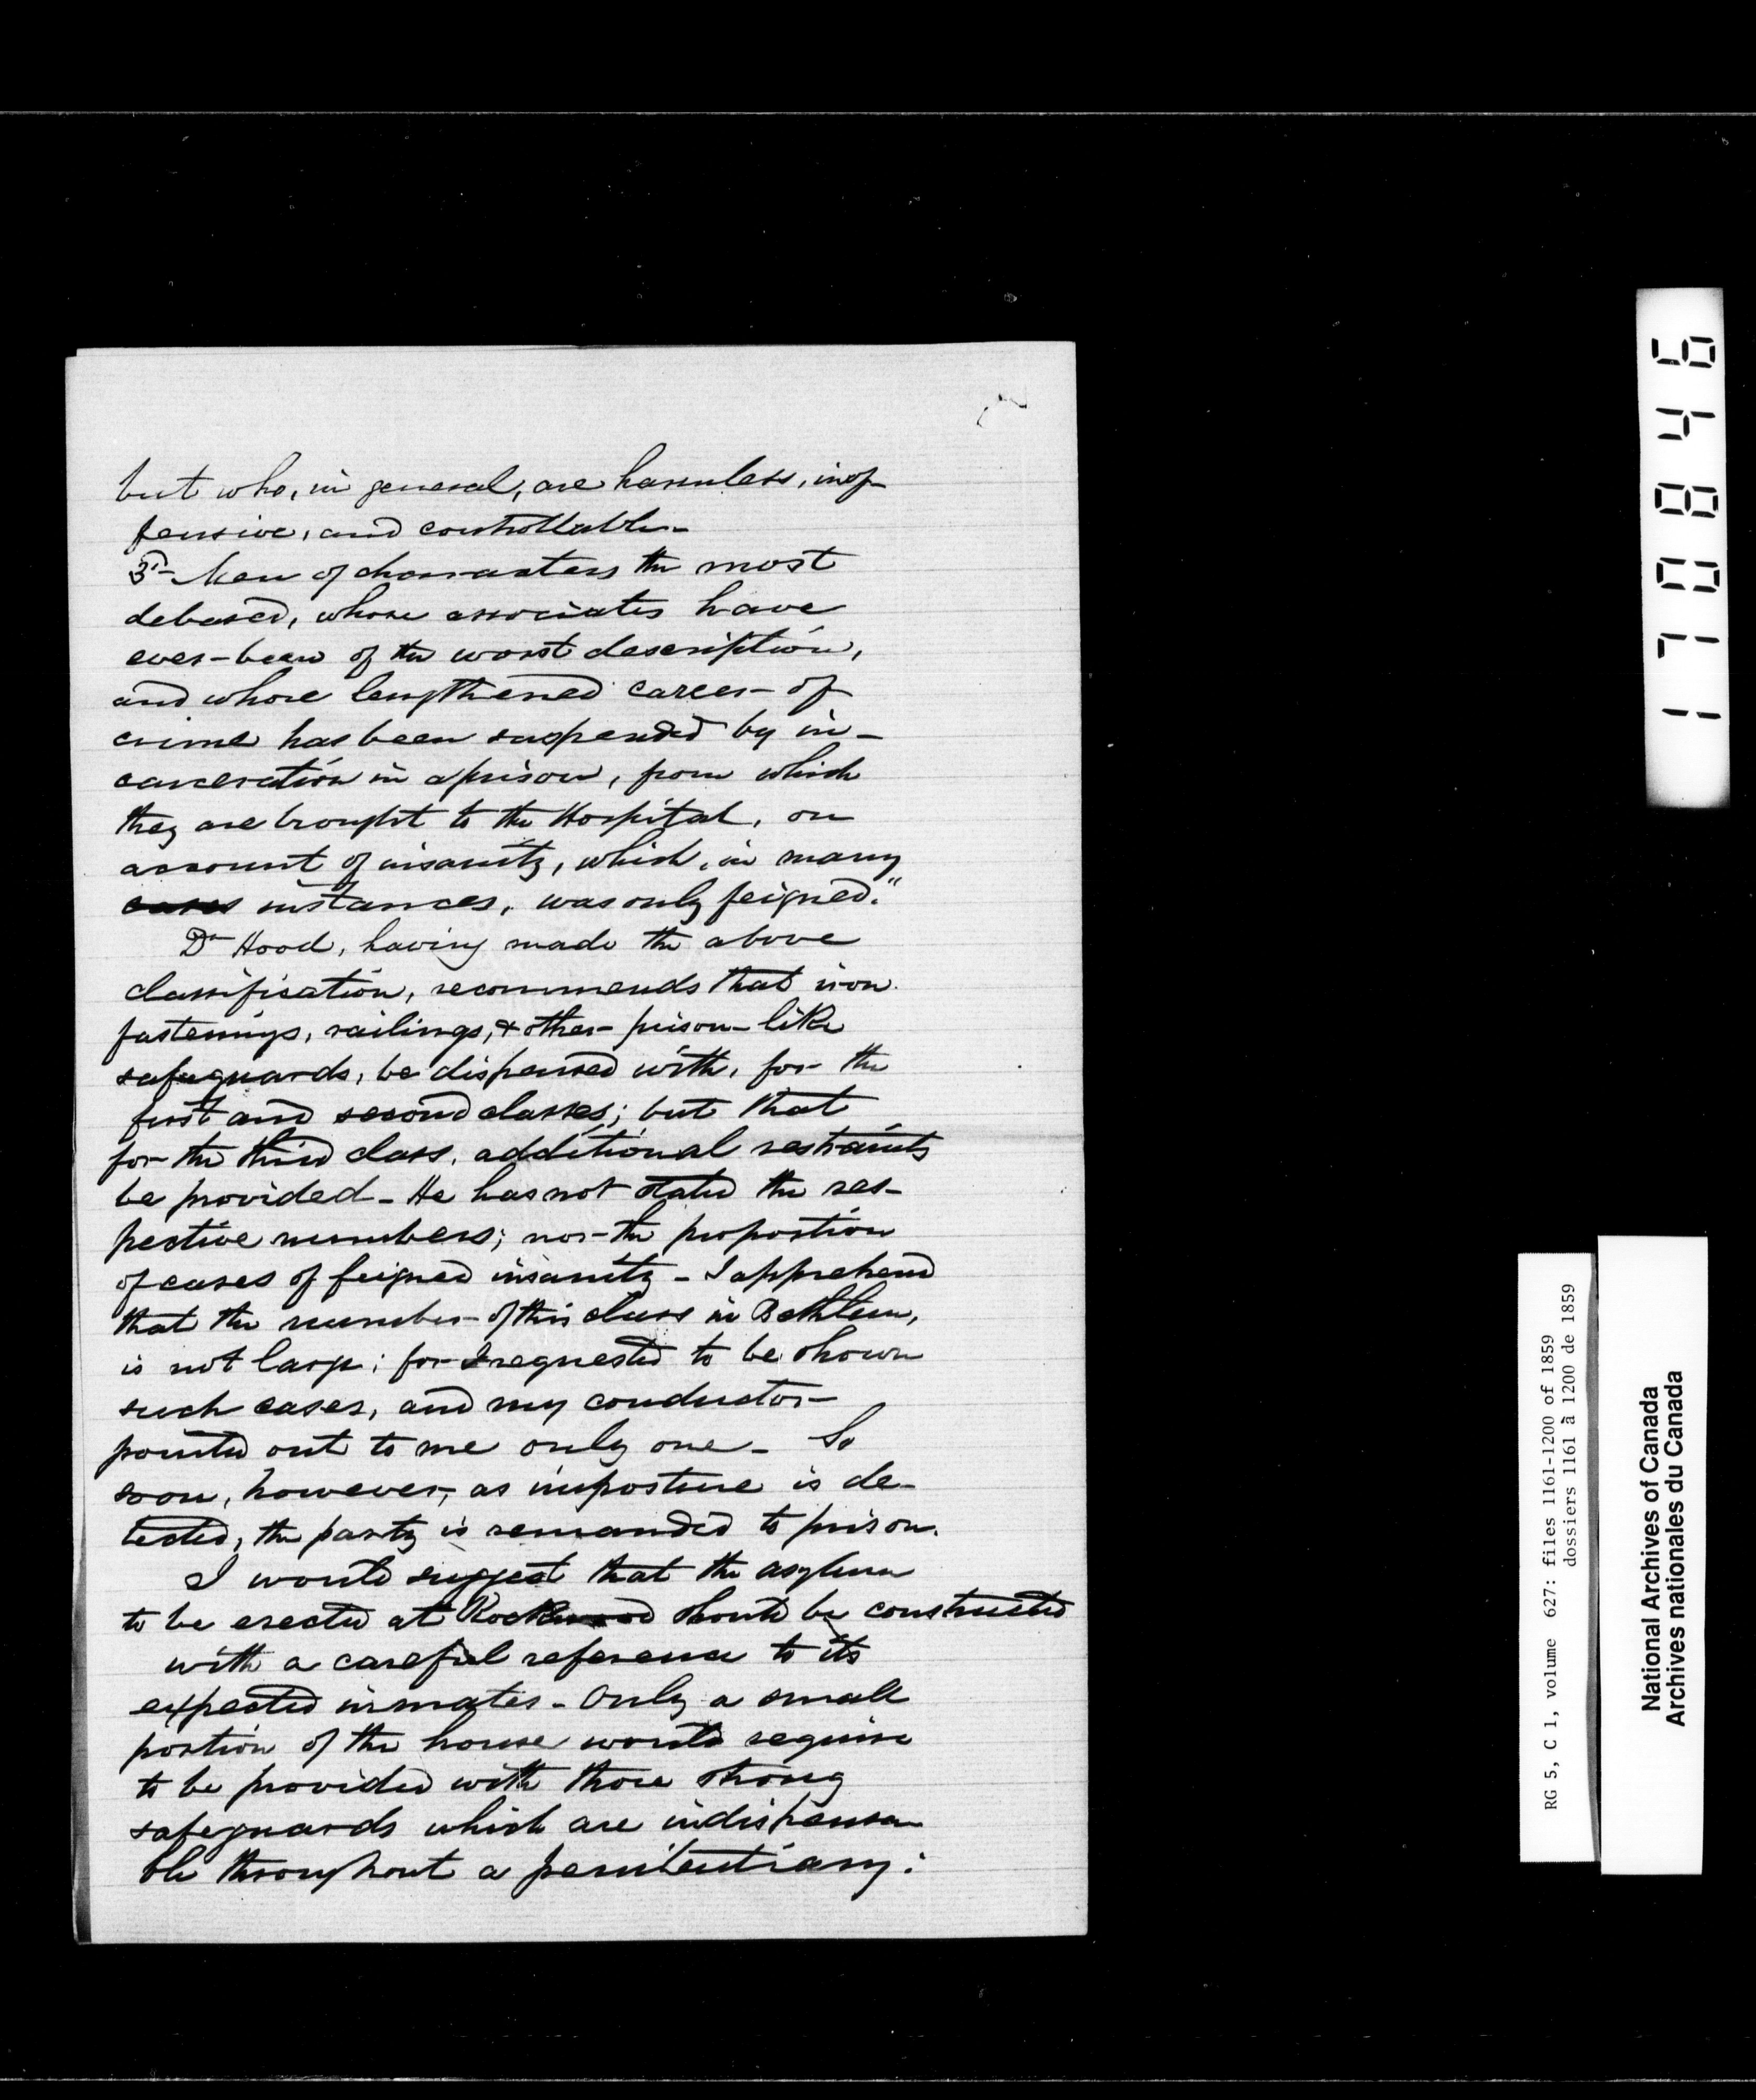 but who, in general, are harmless, inof-
fensive, and controllable -
3rd - Men of characters the most
debased, whose associates have
ever been of the worst description,
and whose lengthened career of
crime has been suspended by in-
carceration in a prison, from which
they are brought to the Hospital, on
account of insanity, which, in many
cases instances, was only feigned."
Dr Hood, having made the above
classification, recommends that iron
fastenings, railings, & other prison-like
safeguards, be dispensed with, for the
first and second classes; but that
for the third class, additional restraints
be provided - He has not stated the res-
pective numbers; nor the proportion
of cases of feigned insanity - I apprehend
that the number of this class in Bethlem,
is not large; for I requested to be shown
such cases, and my conductor
pointed out to me only one - So
soon, however, as imposture is de-
tected, the party is remanded to prison.
I would suggest that the asylum
to be erected at Rockwood should be constructed
with a careful reference to its
expected inmates - Only a small
portion of the house would require
to be provided with those strong
safeguards which are indispensa-
ble throughout a penitentiary:
170846
RG 5, C 1, volume 627: files 1161-1200 of 1859
dossiers 1161 à 1200 de 1859
National Archives of Canada
Archives nationales du Canada